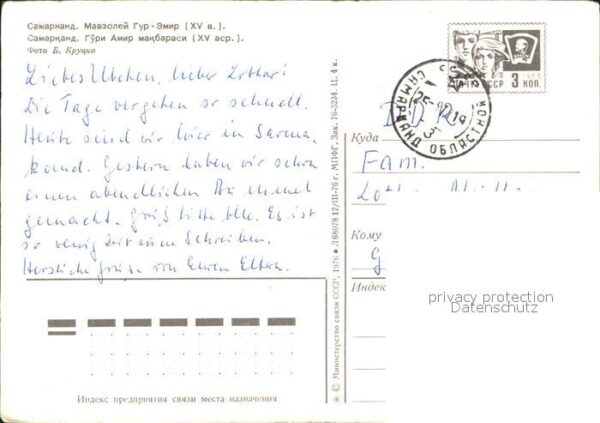 Самарканд. Мавзолей Гур-Эмир (XV в.).
Самарқанд. Гўри Амир мақбараси (XV аср.).
Фото Б. Круцко
Liebes Utchen, lieber Lothar!
Die Tage vergehen so schnell.
Heute sind wir hier in Samar-
kand. Gestern haben wir schon
einen abendlichen
gemacht. Grüß bitte alle. Es ist
so wenig Zeit zum Schreiben.
Herzliche Grüße von Euren Eltern.
Индекс предприятия связи места назначения
* © Министерство связи СССР, 1976 * Л 68078 12/III-76 г. МПФГ. Зак. 76-0234. Ц. 4 к.
ПОЧТА СССР 3 КОП.
1966
САМАРКАНД ОБЛАСТНОЙ
Куда DDR
Fam.
Кому
Индекс
privacy protection
Datenschutz